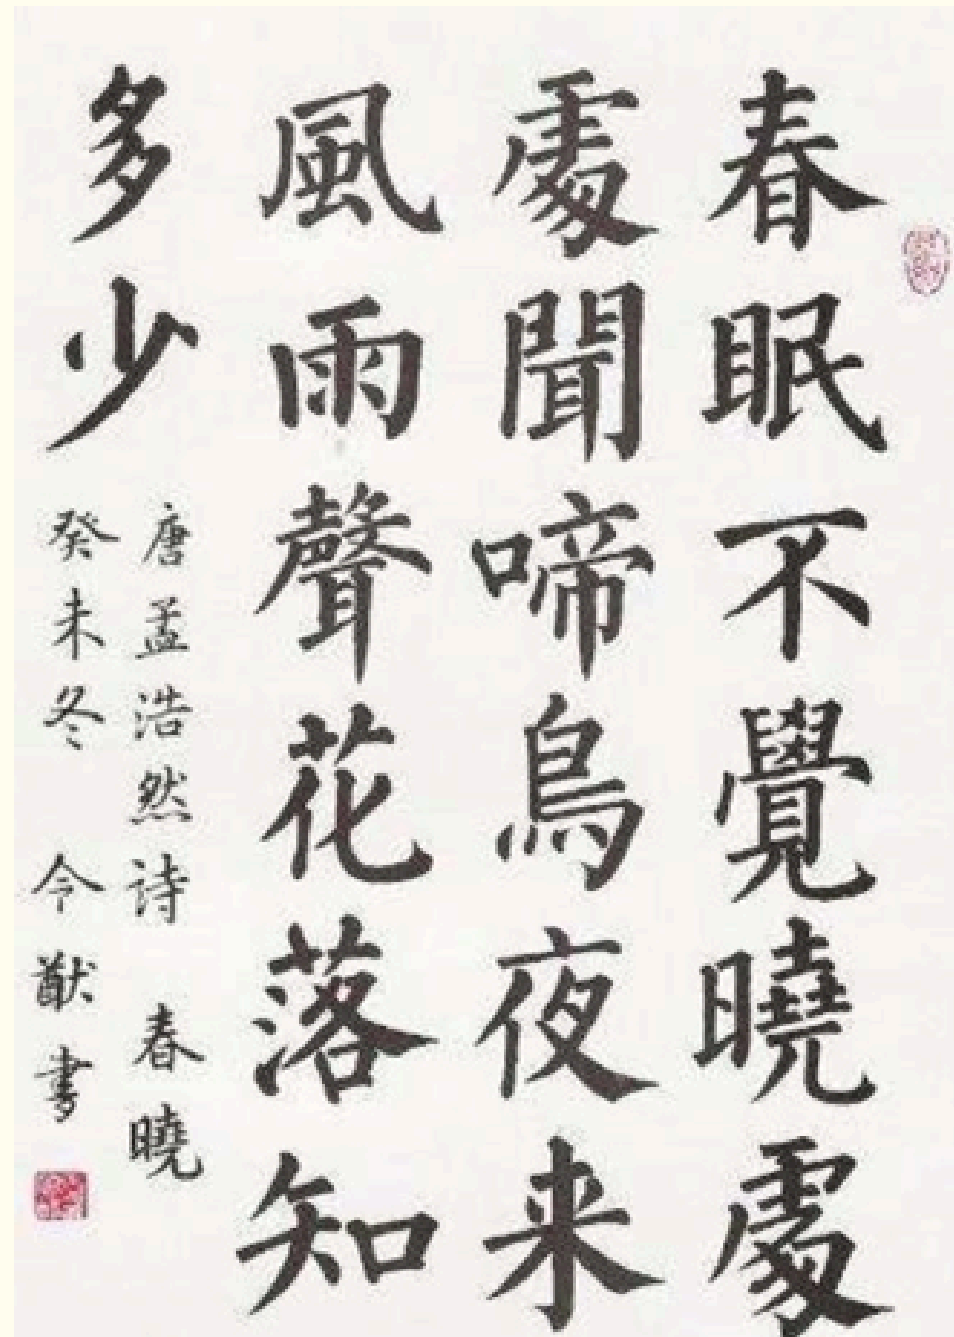 春眠不覺曉處
處聞啼鳥夜来
風雨聲花落知
多少
唐孟浩然詩 春曉
癸未冬 令猷書